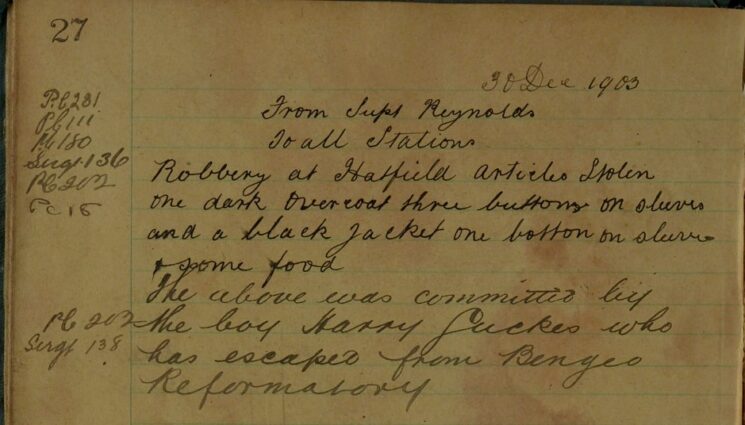 27
30 Dec 1903
P.C 281
PC 111
PC 180
Sergt 136
PC 202
Pc 15
From Supt Reynolds
To all Stations
Robbery at Hatfield articles Stolen
one dark overcoat three buttons on sleeves
and a black Jacket one botton on sleeve
& some food
The above was committed by
the boy Harry Puckes who
has escaped from Bengeo
Reformatory
PC 202
Sergt 138